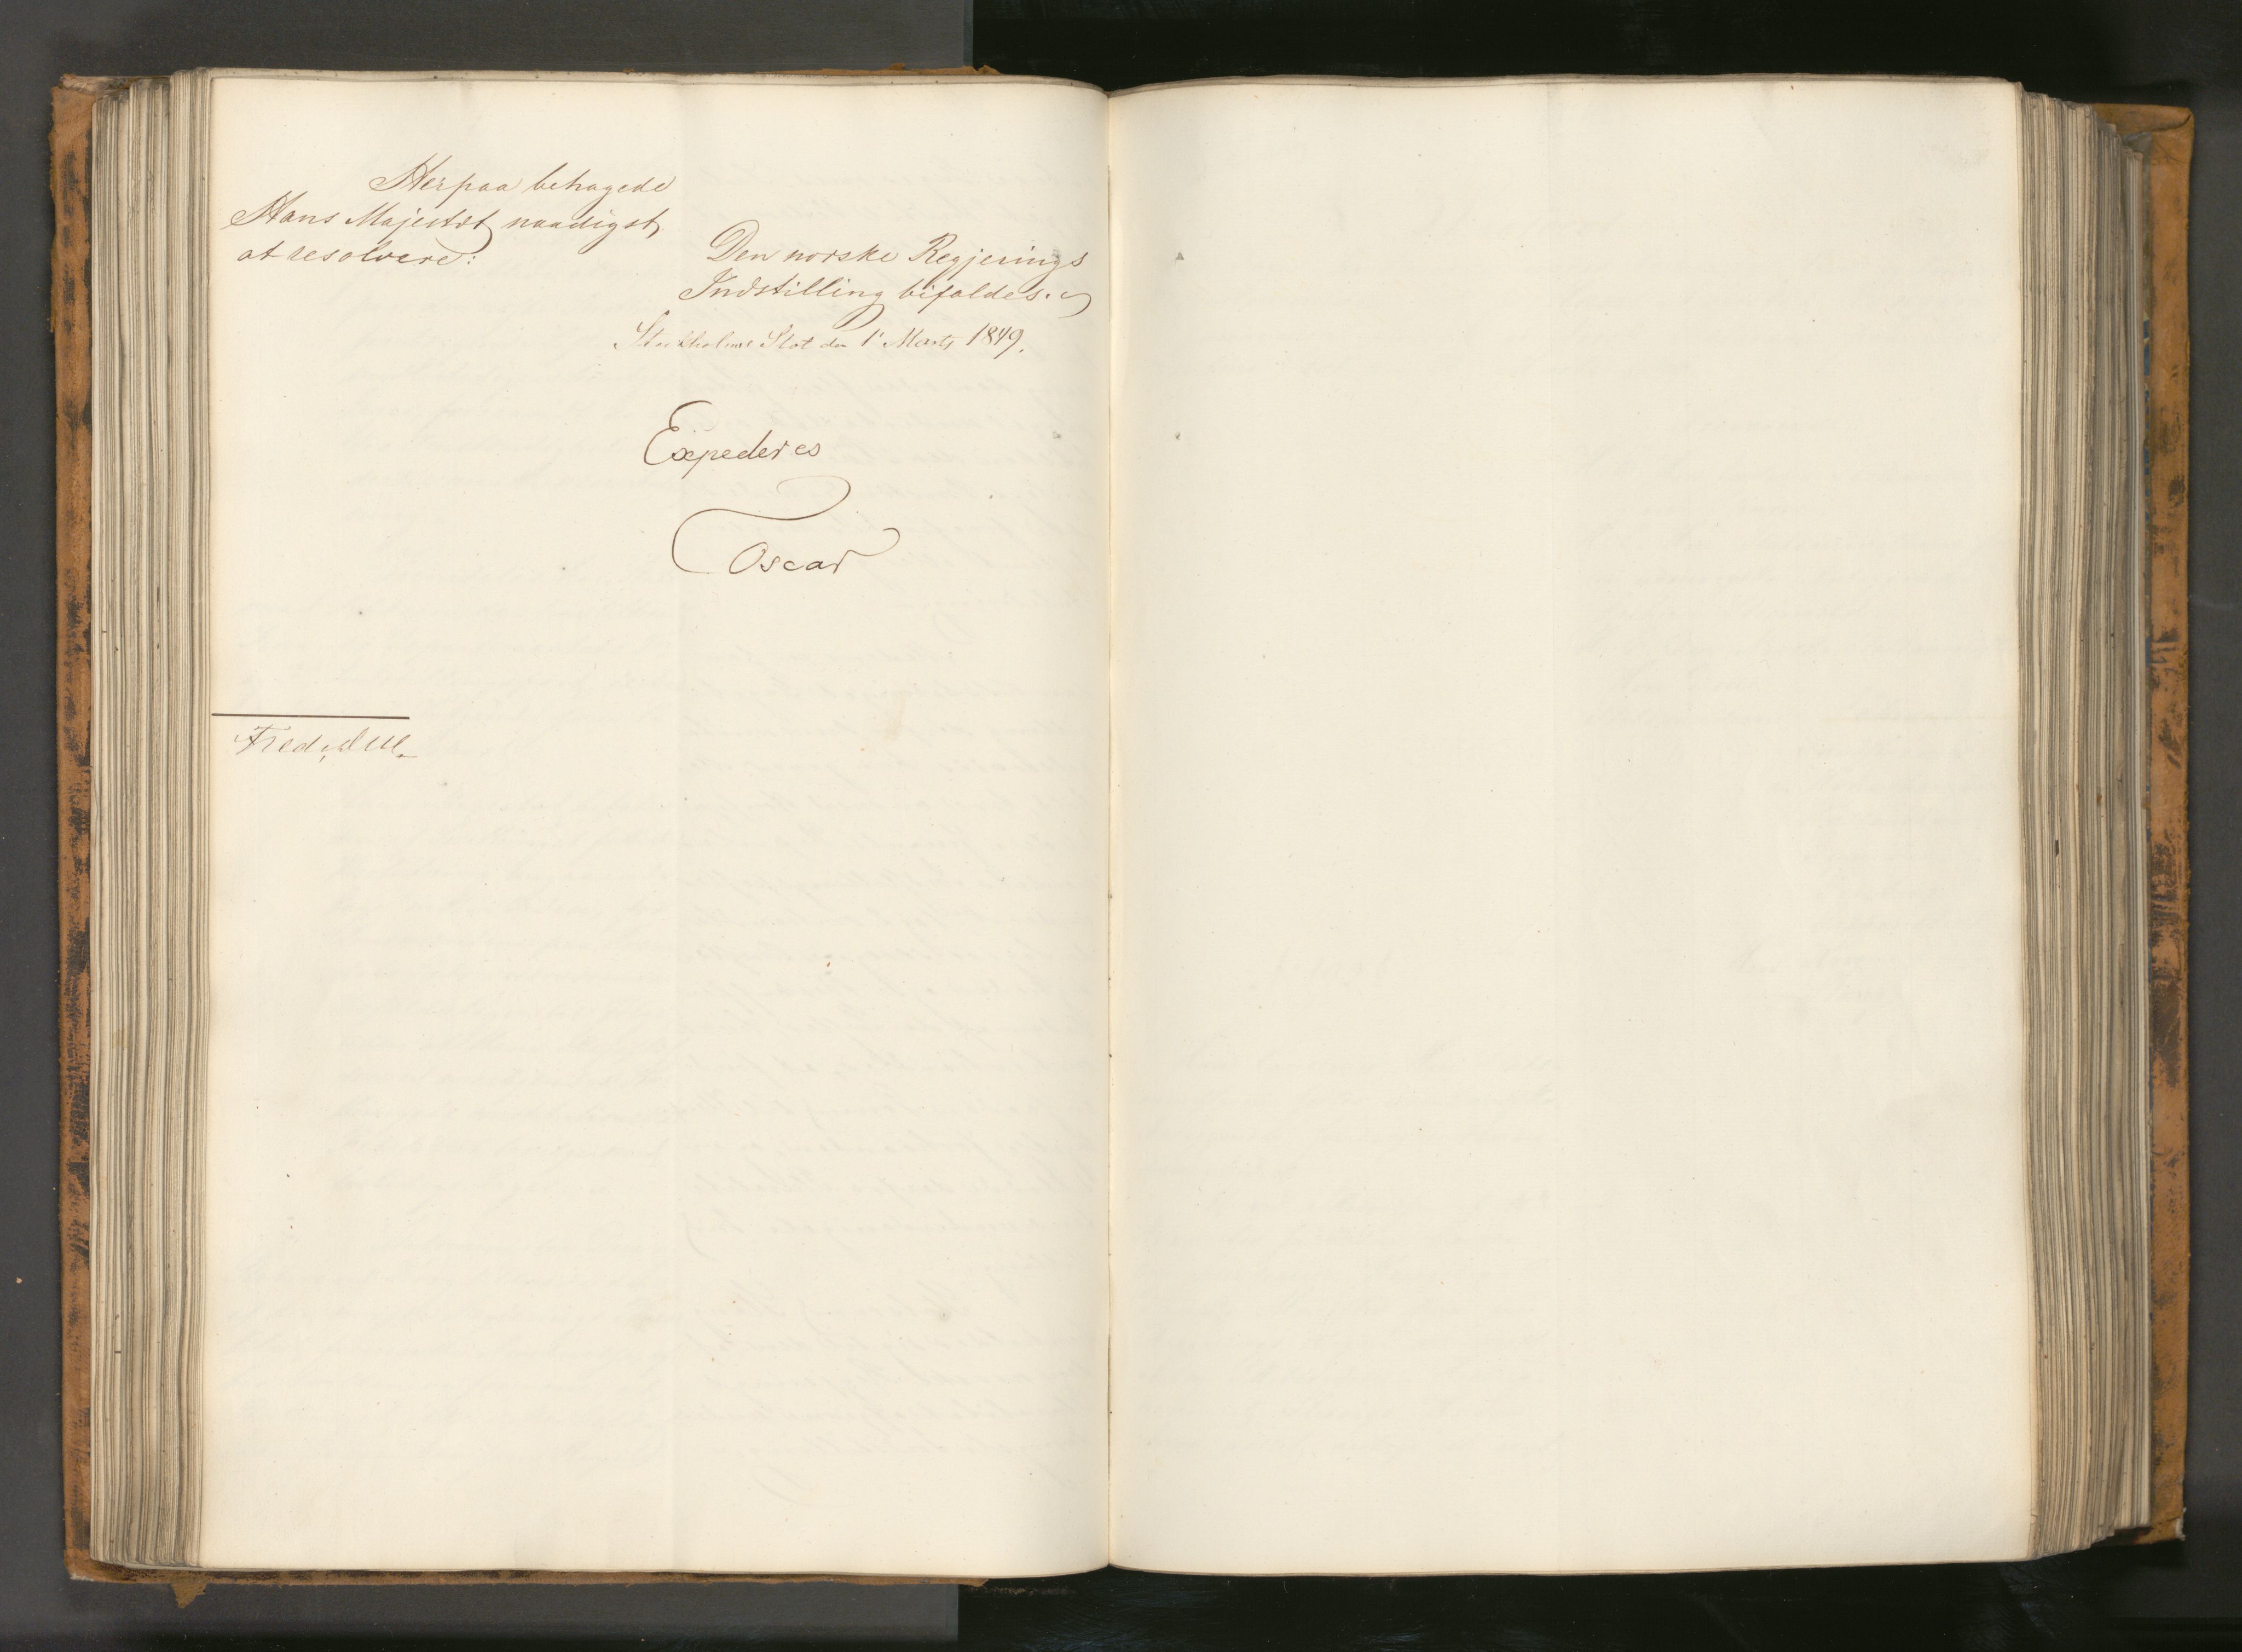 Herpaa behagede
Hans Majestæt naadigst
at resolvere:
Den norske Regjerings
Indstilling bifaldes.
Stockholms Slot den 1 Marts 1849.
Expederes
Oscar
Fred. Due